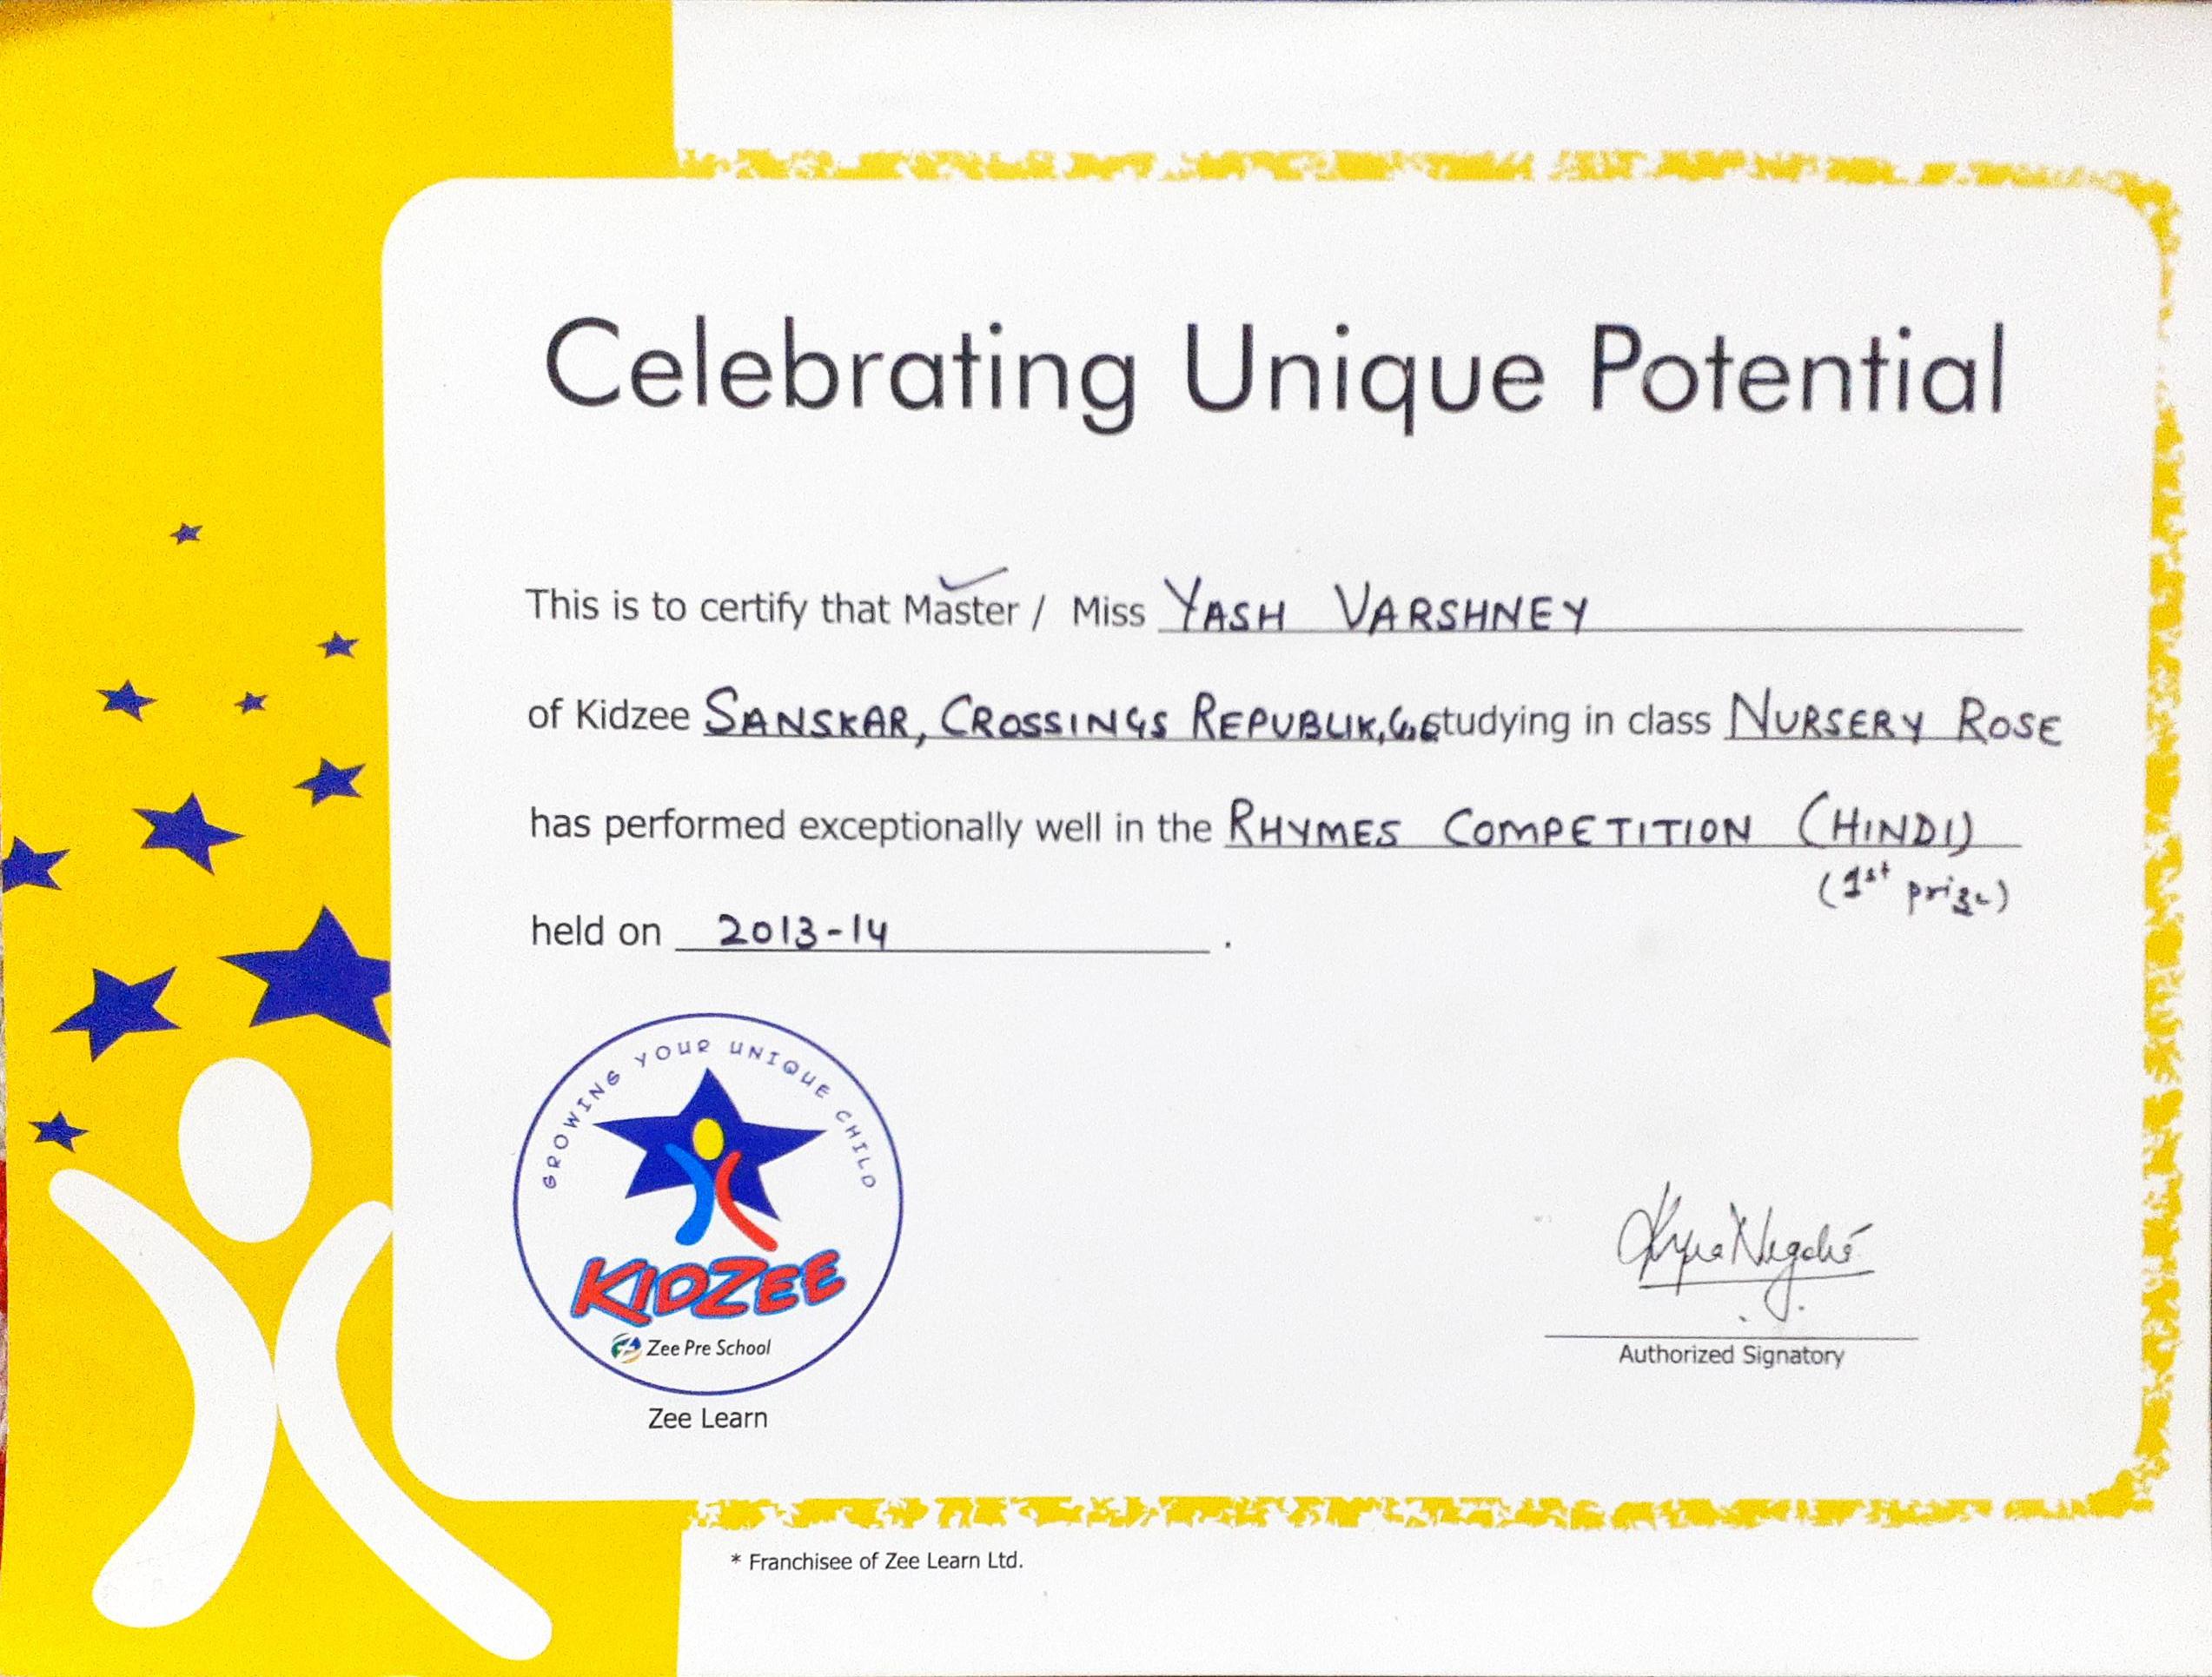 Celebrating Unique Potential
This is to certify that Master / Miss YASH VARSHNEY
of Kidzee SANSKAR, CROSSINGS REPUBLIK, studying in class NURSERY ROSE
has performed exceptionally well in the RHYMES COMPETITION (HINDI)
(1st prize)
held on 2013-14 .
GROWING YOUR UNIQUE CHILD
KIDZEE
Zee Pre School
Zee Learn
Authorized Signatory
* Franchisee of Zee Learn Ltd.